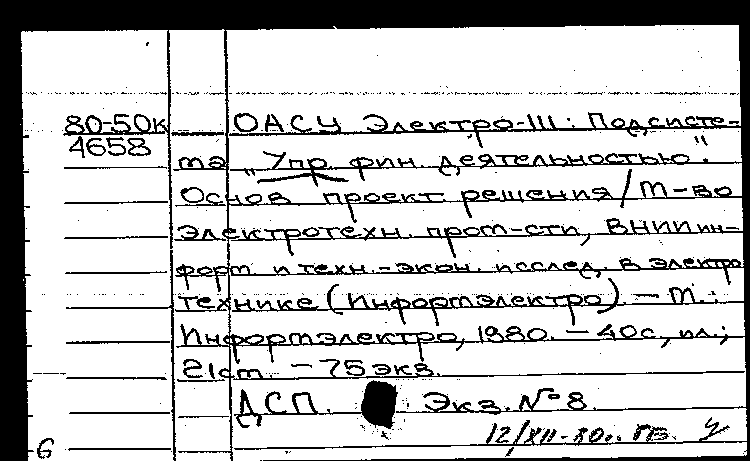 80-50к
4658
ОАСУ Электро-III: Подсисте-
ма „Упр. фин. деятельностью".
Основ. проект. решения / М-во
электротехн. пром-сти, ВНИИ ин-
форм. и техн.-экон. исслед. в электро
технике (Информэлектро) — М.:
Информэлектро, 1980. — 40с., ил.;
21см. — 75 экз.
ДСП. Экз. № 8.
12/XII-80г.
6